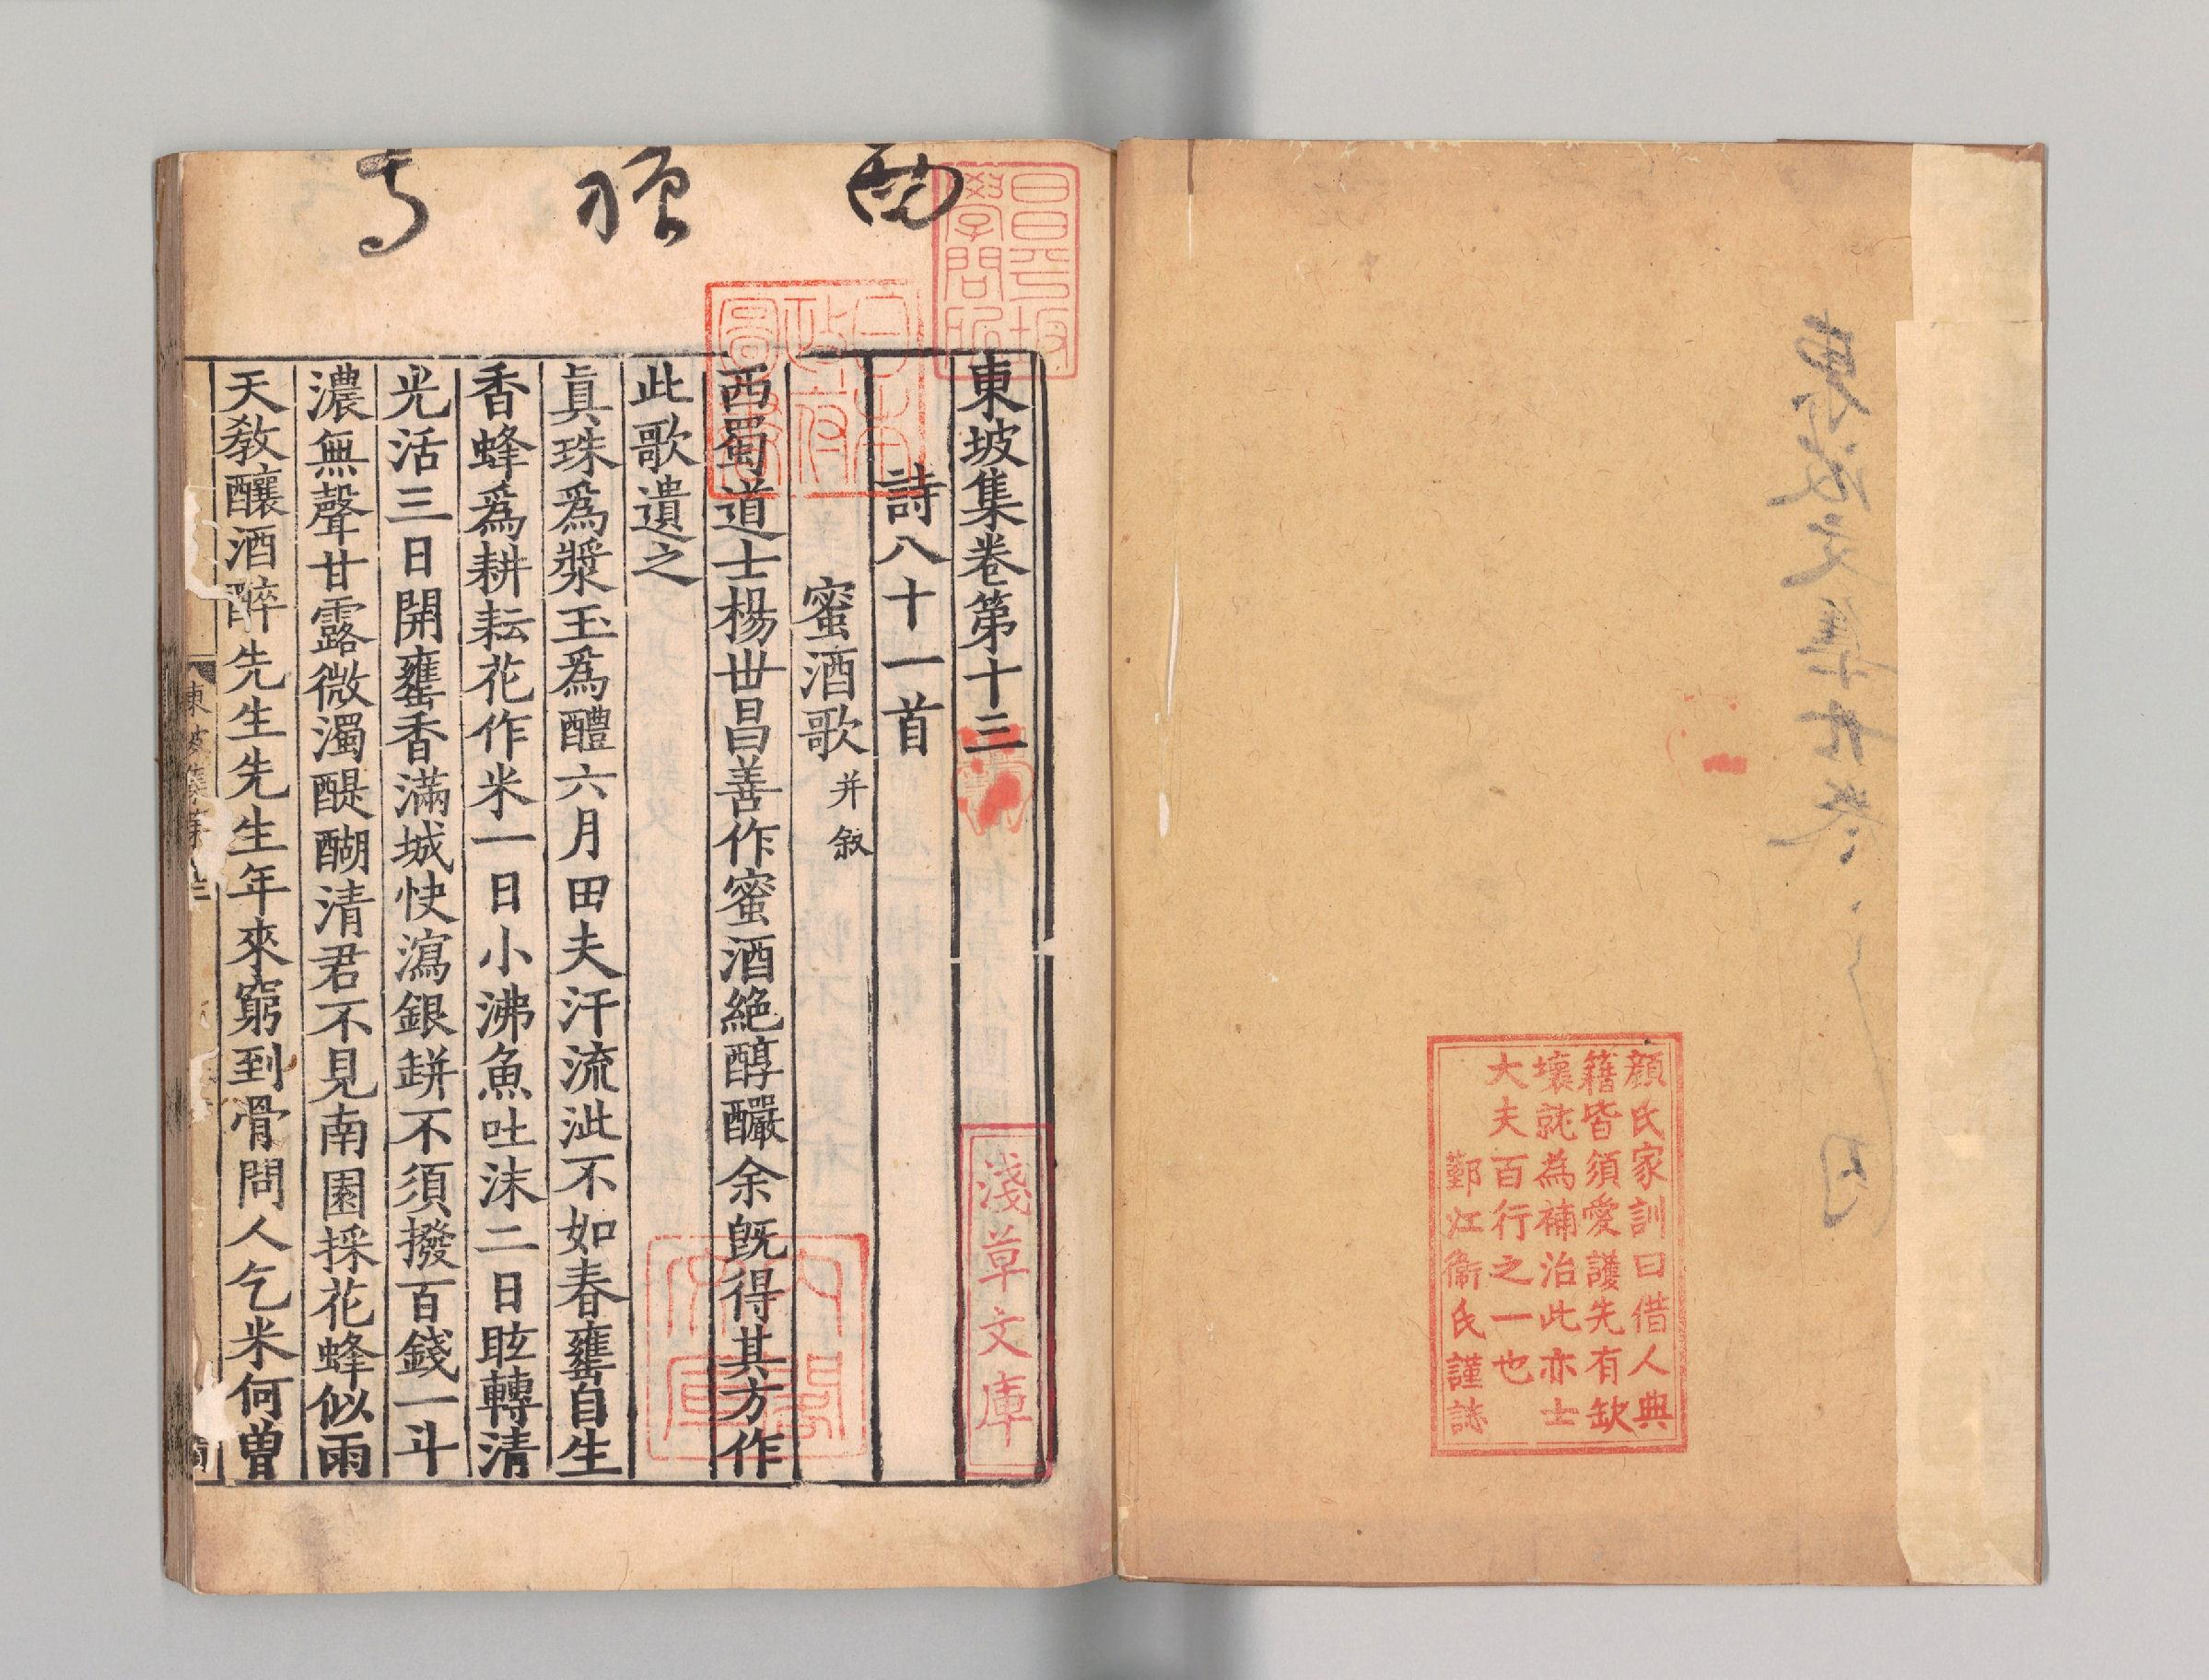 顔氏家訓曰借人典
籍皆須愛護先有缺
壞就為補治此亦士
大夫百行之一也
鄞江衞氏謹誌
昌平坂
學問所
西
禅
寺
東坡集卷第十三
詩八十一首
蜜酒歌并叙
西蜀道士楊世昌善作蜜酒絶醇釅余旣得其方作
此歌遺之
眞珠爲漿玉爲醴六月田夫汗流泚不如春甕自生
香蜂爲耕耘花作米一日小沸魚吐沫二日眩轉清
光活三日開甕香滿城快瀉銀缾不須撥百錢一斗
濃無聲甘露微濁醍醐清君不見南園採花蜂似雨
天教釀酒醉先生先生年來窮到骨問人乞米何曾
日本
政府
圖書
淺草文庫
内閣
文庫